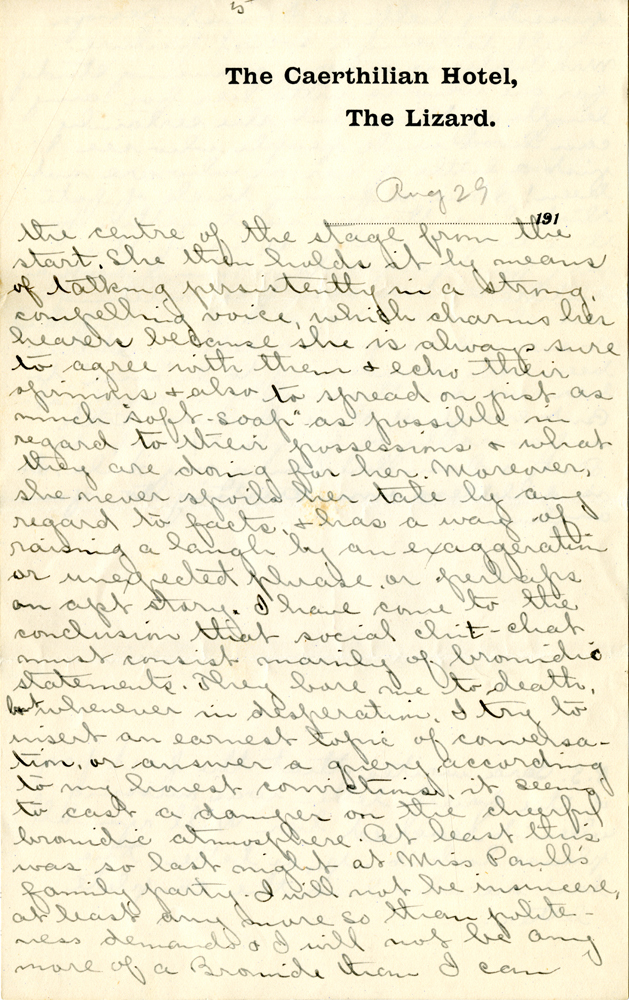 5
The Caerthilian Hotel,
The Lizard.
Aug 29
191
the centre of the stage from the
start. She then holds it by means
of talking persistently in a strong,
compelling voice, which charms her
hearers because she is always sure
to agree with them & echo their
opinions & also to spread on just as
much "soft-soap" as possible in
regard to their possessions & what
they are doing for her. Moreover,
she never spoils her tale by any
regard to facts, & has a way of
raising a laugh by an exaggeration
or unexpected phrase, or perhaps
an apt story. I have come to the
conclusion that social chit-chat
must consist mainly of bromidic
statements. They bore me to death,
but whenever in desperation, I try to
insert an earnest topic of conversa-
tion, or answer a query according
to my honest convictions, it seems
to cast a damper on the cheerful
bromidic atmosphere. At least this
was so last night at Miss Paull's
family party. I will not be insincere,
at least any more so than polite-
ness demands & I will not be any
more of a Bromide than I can